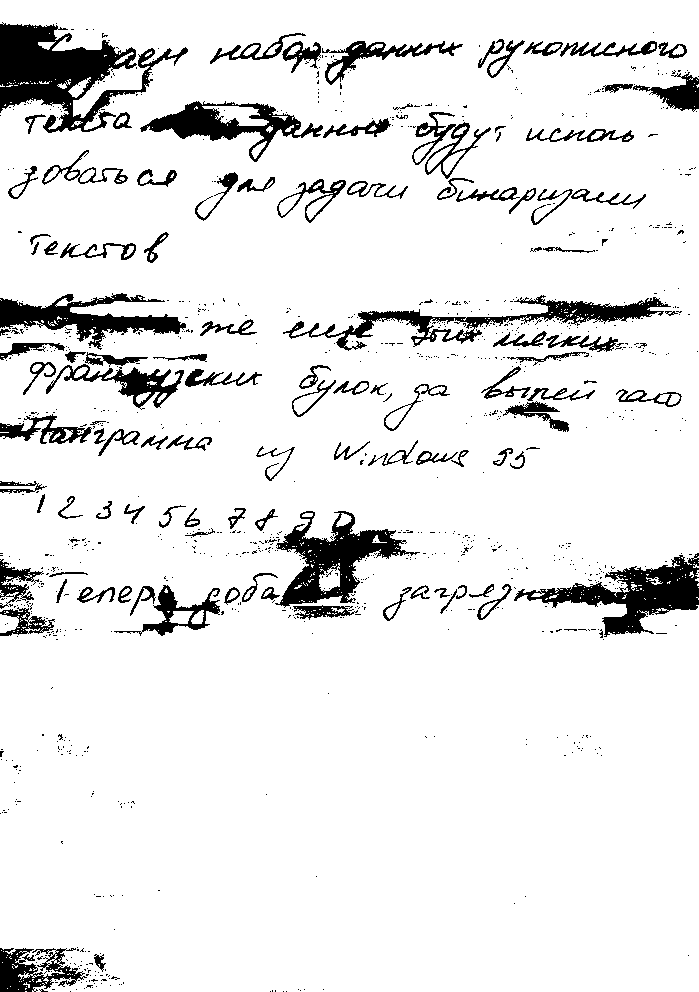 Создаем набор данных рукописного
текста данные будут исполь-
зоваться для задачи бинаризации
текстов
же еще этих мягких
французских булок, да выпей чаю
Панграмма из Windows 95
1 2 3 4 5 6 7 8 9 0
Теперь